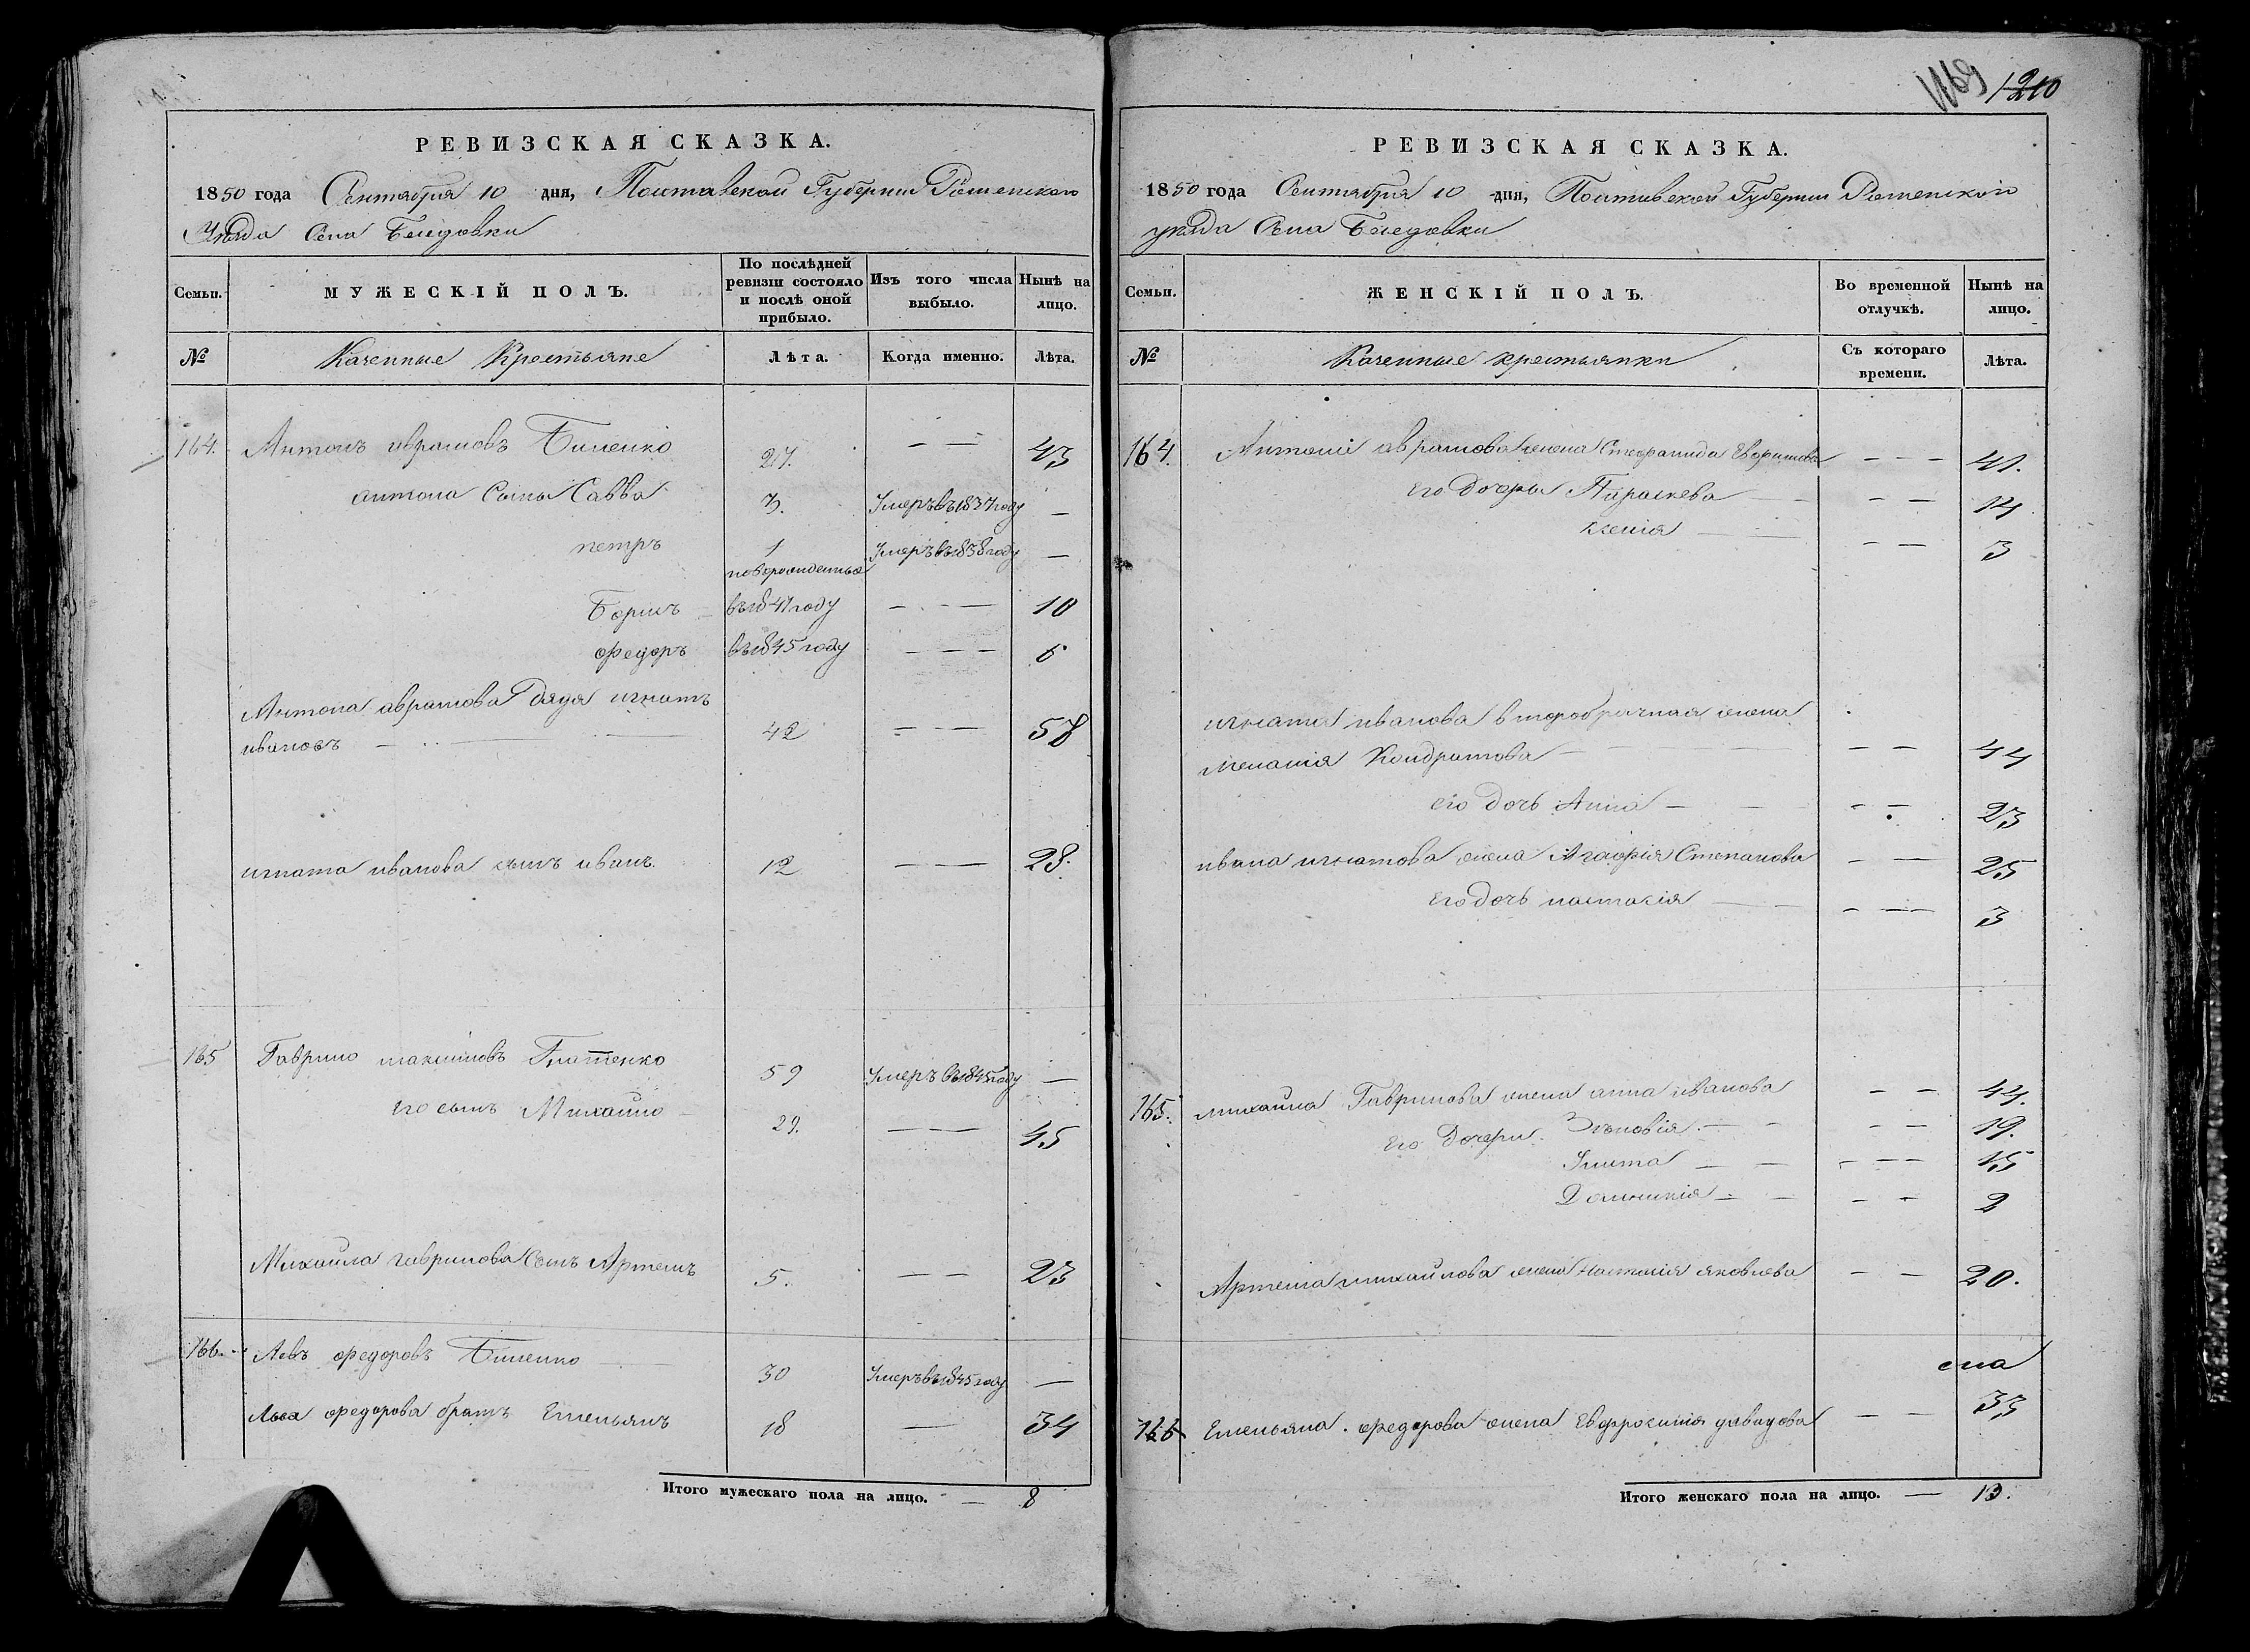 РЕВИЗСКАЯ СКАЗКА.
1850 года Сентября 10 дня, Полтавской Губернии Роменского
Уѣзда Села Беседовки
Семьи.
МУЖЕСКІЙ ПОЛЪ.
По послѣдней ревизіи состояло и послѣ оной прибыло.
Изъ того числа выбыло.
Нынѣ на лицо.
№
Казенные Крестьяне
Лѣта.
Когда именно.
Лѣта.
164. Антонъ аврамовъ Биленко 27. — — 43
антона Сыны Савва 3. Умеръ въ 1837 году —
петръ 1 Умеръ въ 1838 году —
новорожденные
Борисъ въ 1841 году — - — 10
Федоръ въ 1845 году — — — 6
Антона аврамова дядя игнатъ
ивановъ — 42 — - — 58
игната иванова сынъ иванъ. 12 — — 28.
165 Гаврило максимовъ Гнатенко 59 Умеръ въ 1845 году —
его сынъ Михайло 29. — — 45
Михайла гаврилова Сынъ Артемъ 5. — — 23
166. Левъ федоровъ Биленко 30 Умеръ въ 1845 году —
Льва федорова братъ Емельянъ 18 — 34
Итого мужескаго пола на лицо. — 8
1169 1210
РЕВИЗСКАЯ СКАЗКА.
1850 года Сентября 10 дня, Полтавской Губернии Роменской
уѣзда Села Беседовки
Семьи.
ЖЕНСКІЙ ПОЛЪ.
Во временной отлучкѣ.
Нынѣ на лицо.
№
Казенные крестьянки
Съ котораго времени.
Лѣта.
164. Антона аврамова жена Стефанида — — — 41.
его дочери Параскева — — 14
ксенія — — 3
игната иванова второбрачная жена
меланія Кондратова — — 44
его дочь Анна — - — 23
ивана игнатова жена Агафія Степанова — — 25
его дочь настасія — — 3
165. михайла Гаврилова жена анна иванова — — 44.
его дочери Зѣновія — — 19.
Улита — — — 15
Домникія — — 2
Артема михайлова жена настасія яковлева — — 20.
166 Емельяна федорова жена Евфросинія давидова — — 33
Итого женскаго пола на лицо. — 13.